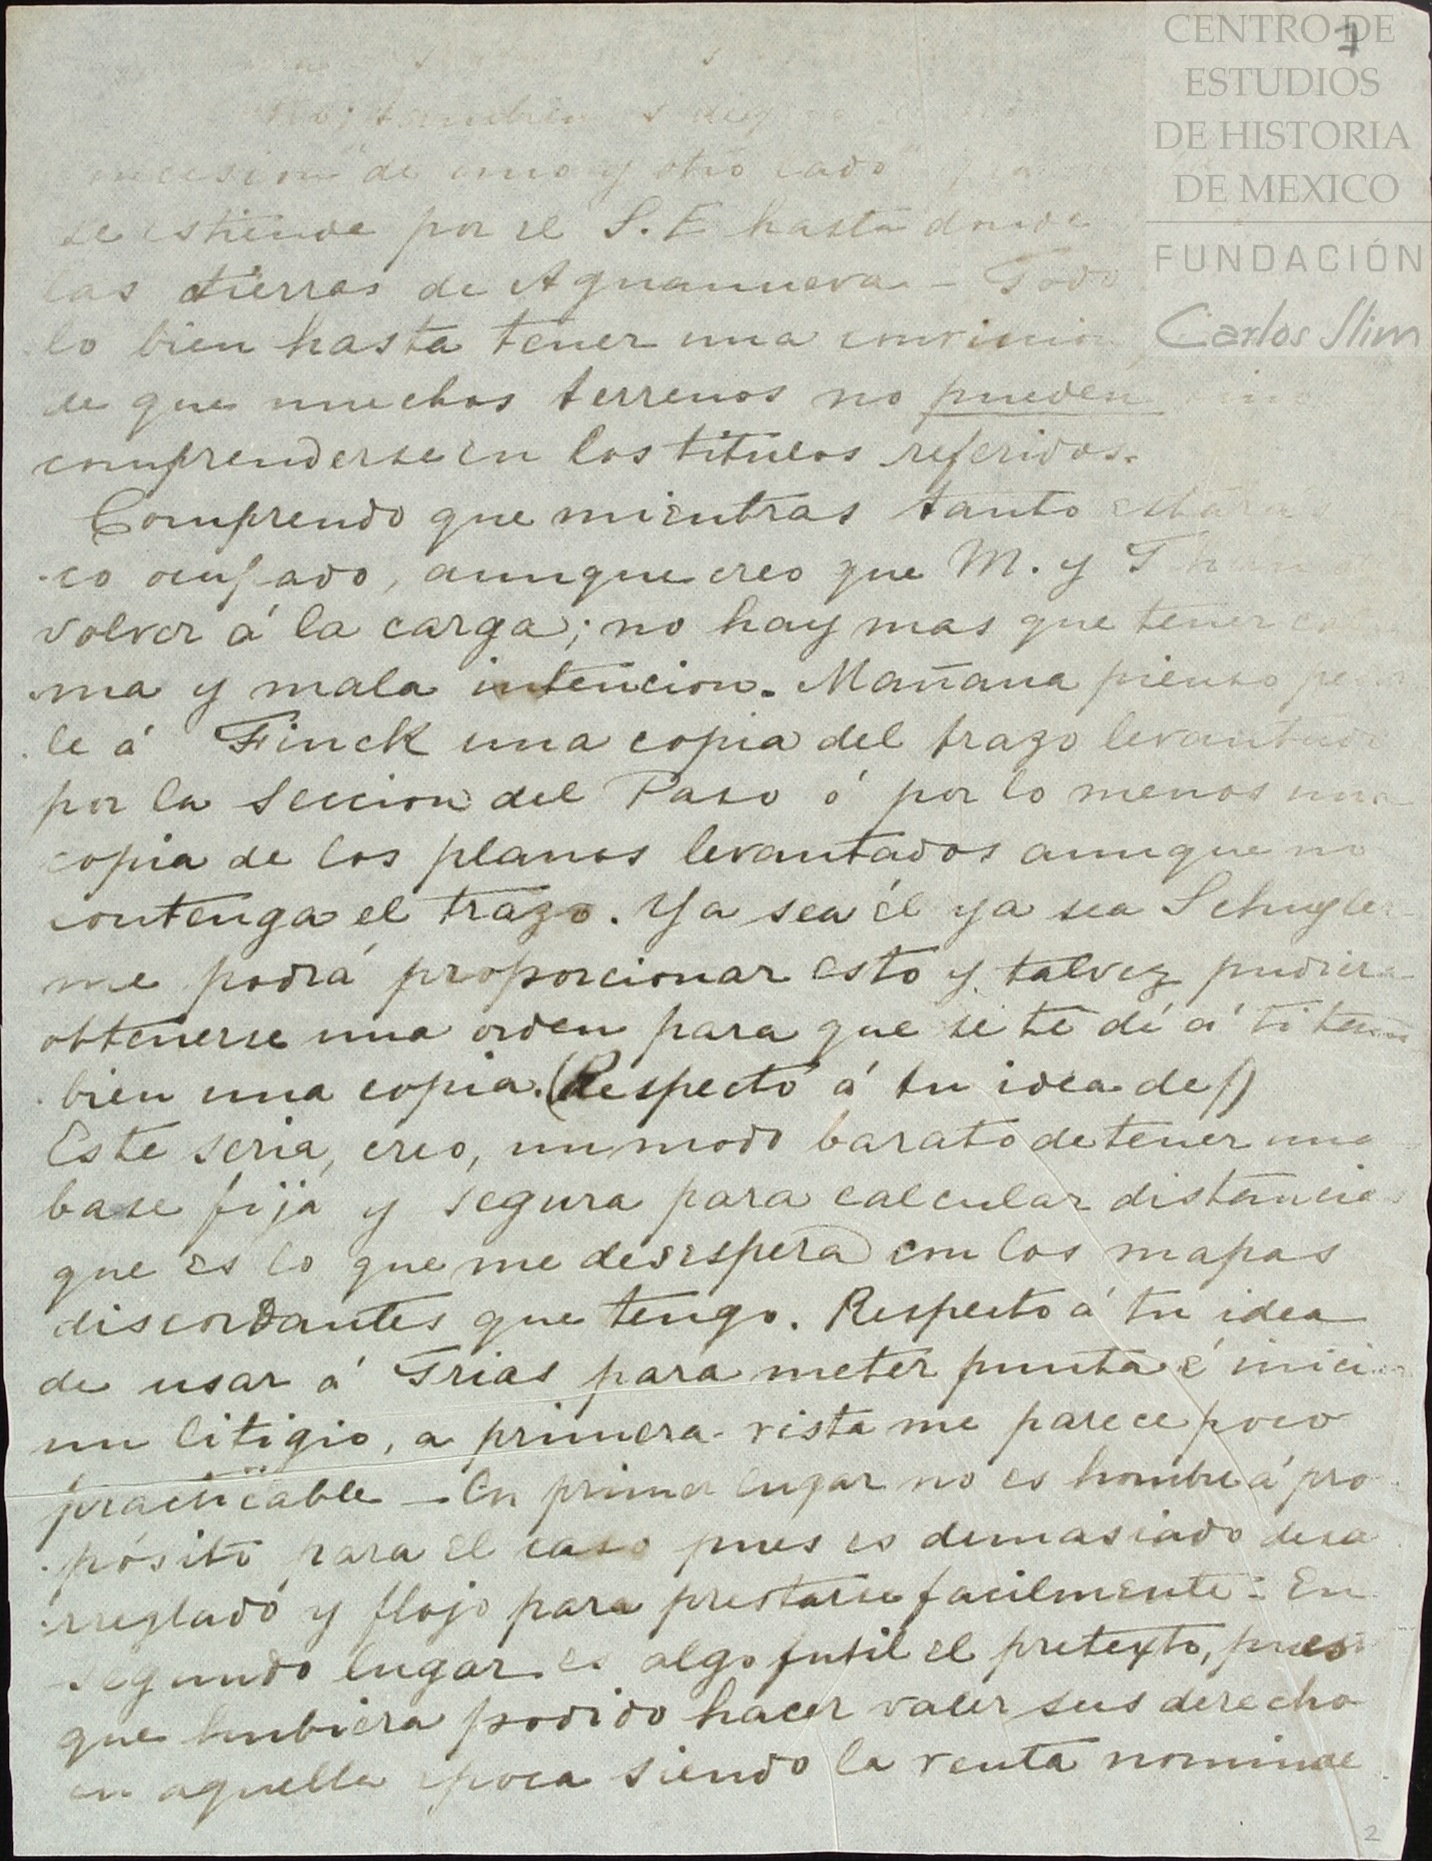 CENTRO DE
ESTUDIOS
DE HISTORIA
DE MEXICO
FUNDACIÓN
Carlos Slim
de uno y otro lado
se estiende por el S.E hasta donde
las tierras de Aguanueva - Todo
lo bien hasta tener una
de que muchos terrenos no pueden
comprenderse en los titulos referidos.
Comprendo que mientras tanto estaras
co ocupado, aunque creo que M. y T
volver á la carga; no hay mas que tener
ma y mala intencion. Mañana pienso
le á Finck una copia del trazo levantado
por la Seccion del Paso ó por lo menos una
copia de los planos levantados aunque no
contenga el trazo. Ya sea él ya sea Schuyler
me podrá proporcionar esto y talvez pudiera
obtenerse una orden para que se te dé á ti tam
bien una copia. (Respecto á tu idea de)
Este seria, creo, un modo barato de tener una
base fija y segura para calcular distancias
que es lo que me desespera con los mapas
discordantes que tengo. Respecto á tu idea
de usar á Trias para meter punta é inici
un litigio, a primera vista me parece poco
practicable - En primer lugar no es hombre á pro
pósito para el caso pues es demasiado desa
rreglado y flojo para prestarse facilmente: En
segundo lugar es algo futil el pretexto, pues
que hubiera podido hacer valer sus derecho
en aquella epoca siendo la venta
2